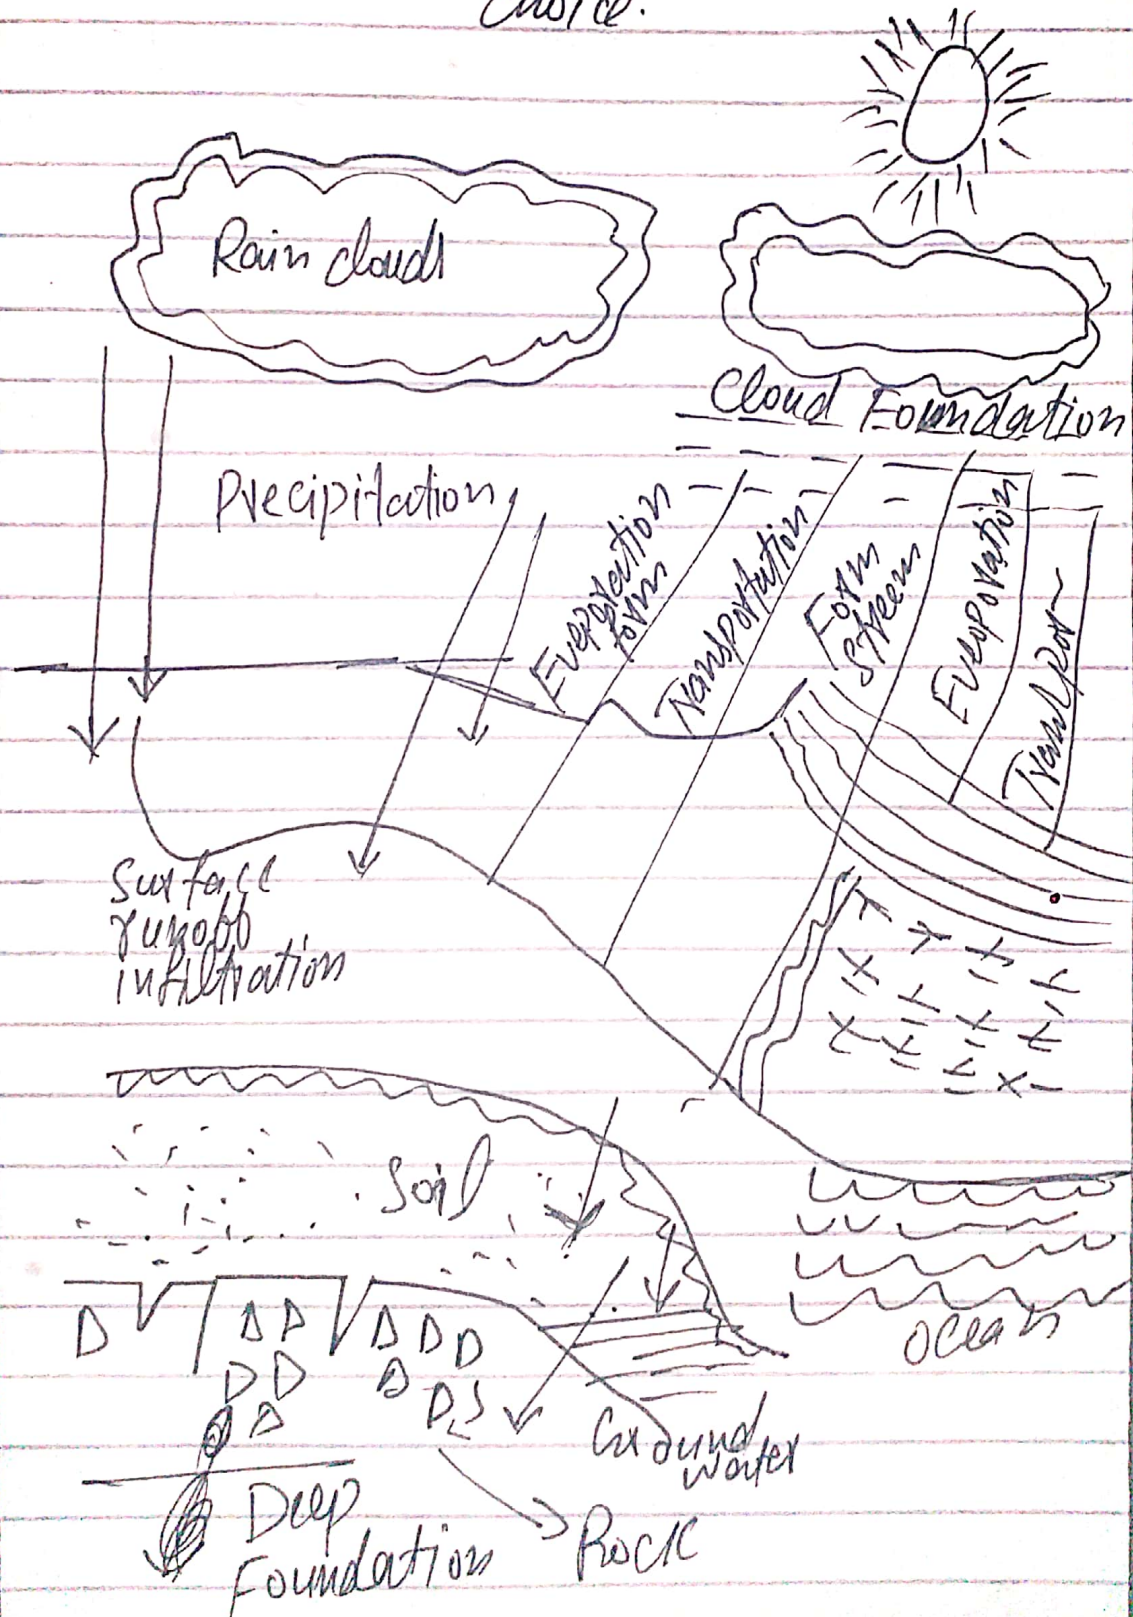 choice.
Rain clouds
Cloud Foundation
Precipitation
Eveporation
form
Transportation
Form
streem
Evoporation
Surface
runoff
infiltration
Soil
Ocean
Ground
water
Deep
Foundation
Rock